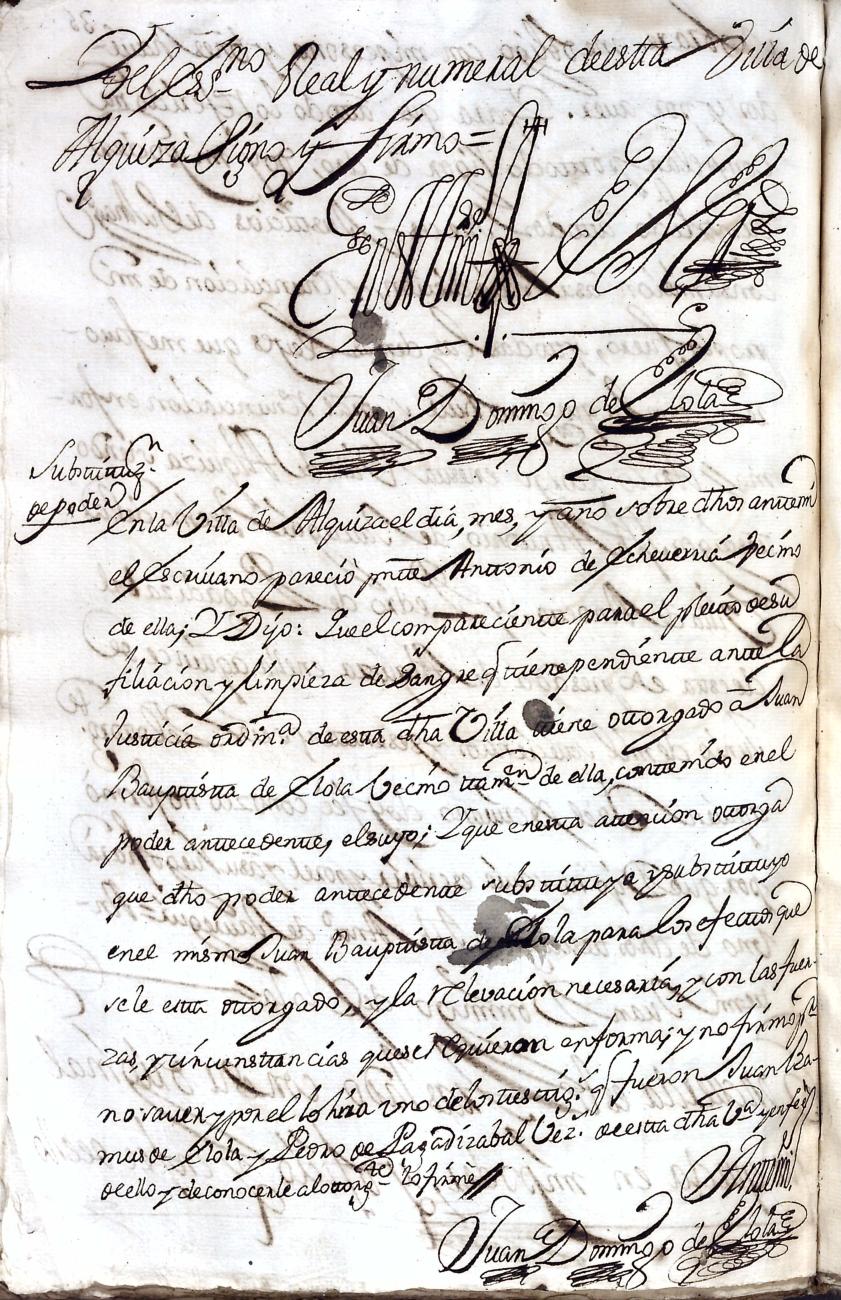 del Ess.no Real y numeral deestta Villa de
Alquiza Signo y firmo =
En testtim.o de Verdad
Juan Domingo de Olola
Substtittuz.n
de poder
En la Villa de Alquiza el dia, mes, y año sobre dhos antte mi
el Escriuano pareciò press.tte Anttonio de Echeverria vecino
de ella; Y Dijo: Que el compareciente para el pleitto de su
filiacion y limpieza de Sangre q ttiene pendientte antte la
Justticia ordin.a de estta dha Villa ttiene ottorgado â Juan
Bauptistta de Olola vecino ttam.en de ella, conttenido en el
poder anttecedentte, el suyo; Y que en estta attencion ottorga
que dho poder anttecedentte substtittuye y substtittuyo
en el mismo Juan Bauptistta de Olola para los efecttos que
se le estta ottorgado, y la relevacion necesaria, y con las fuer-
zas, y circunsttancias que se requieran en forma; y no firmo p.r
no saver y por el lo hizo uno de los testtig.s q fueron Juan Ra-
mus de Olola y Pedro de Pagadizabal Vez.s de estta dha V.a y en fee
de ello y de conocerle al ottorg.tte lo firmè
Antte mi
Juan Domingo de Olola